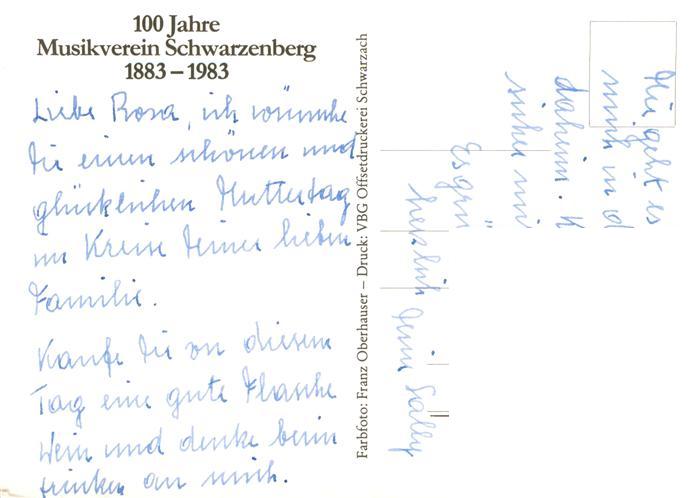 100 Jahre
Musikverein Schwarzenberg
1883 – 1983
Liebe Rosa, ich wünsche
dir einen schönen und
glücklichen Muttertag
im Kreise deiner lieben
Familie.
Kaufe dir von diesem
Tag eine gute Flasche
Wein und denke beim
trinken an mich.
Farbfoto: Franz Oberhauser – Druck: VBG Offsetdruckerei Schwarzach
Mir geht es
mich in d
daheim. K
sicher mi
Es grü
herzlich deine Sally